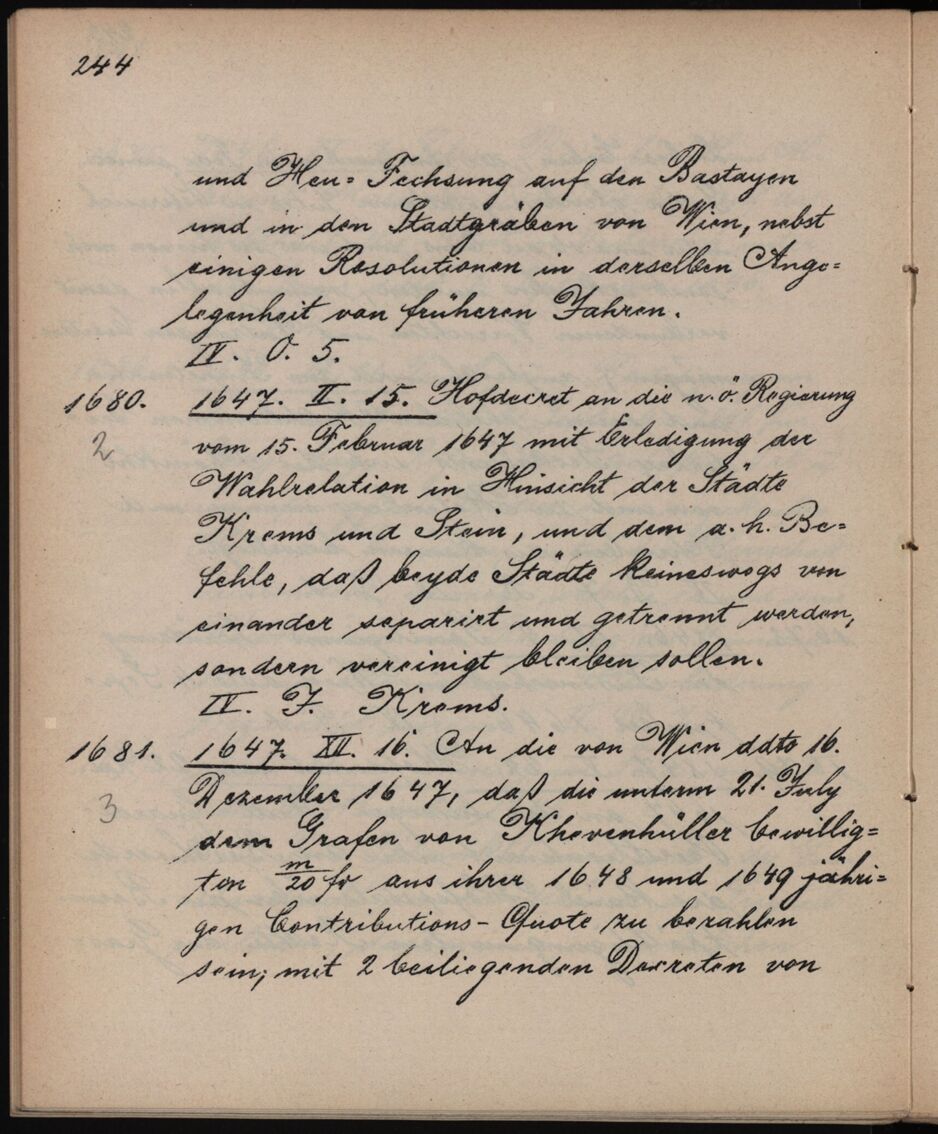 244
und Heu= Fechsung auf den Bastayen
und in den Stadtgräben von Wien, nebst
einigen Resolutionen in derselben Ange=
legenheit von früheren Jahren.
IV. O. 5.
1680. 1647. II. 15. Hofdecret an die n. ö. Regierung
2 vom 15. Februar 1647 mit Erledigung der
Wahlrelation in Hinsicht der Städte
Krems und Stein, und dem a. h. Be=
fehle, daß beyde Städte keineswegs von
einander separirt und getrennt werden,
sondern vereinigt bleiben sollen.
IV. F. Krems.
1681. 1647. XII. 16. An die von Wien ddto 16.
3 Dezember 1647, daß die unterm 21. July
dem Grafen von Khevenhüller bewillig=
ten m/20 fr aus ihrer 1648 und 1649 jähri=
gen Contributions-Quote zu bezahlen
sein; mit 2 beiliegenden Decreten von